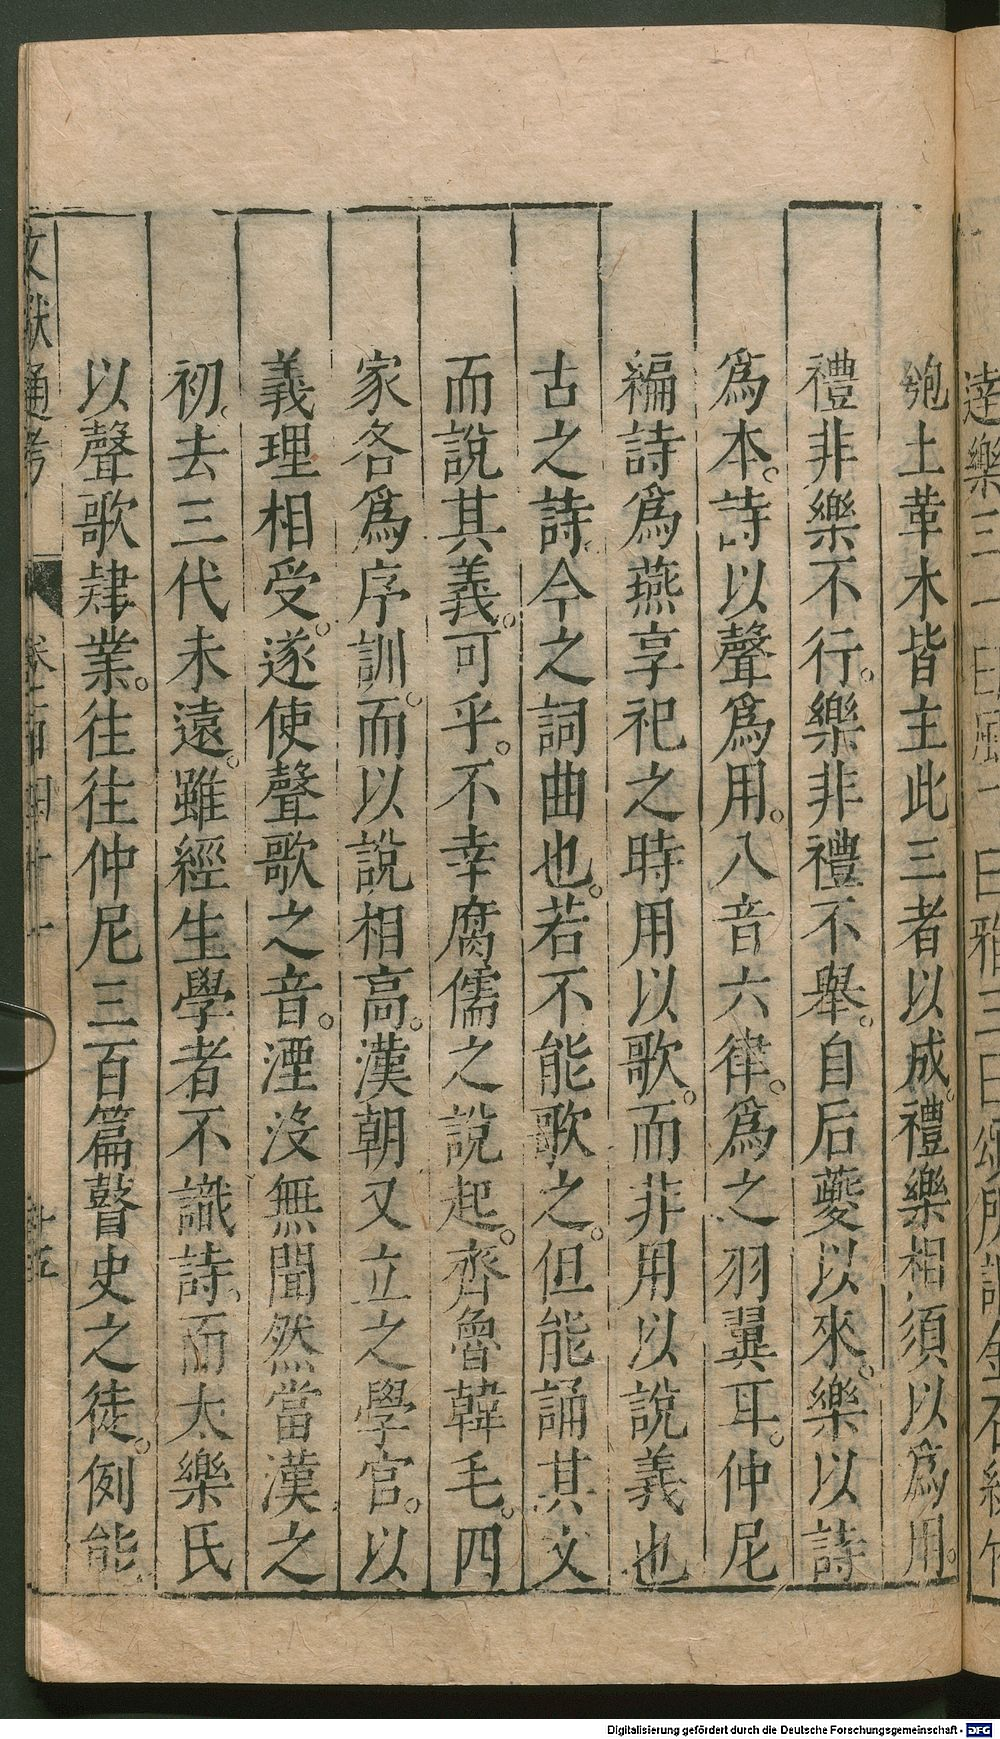 達樂三一曰風二曰雅三曰頌所謂金石絲竹
匏土革木皆主此三者以成。禮樂相須以爲用。
禮非樂不行。樂非禮不舉。自后夔以來。樂以詩
爲本。詩以聲爲用。八音六律。爲之羽翼耳。仲尼
編詩爲燕享祀之時用以歌。而非用以說義也
古之詩。今之詞曲也。若不能歌之。但能誦其文
而說其義。可乎。不幸腐儒之說起。齊魯韓毛。四
家各爲序訓。而以說相高。漢朝又立之學官。以
義理相受。遂使聲歌之音。湮沒無聞然當漢之
初。去三代未遠。雖經生學者不識詩、而太樂氏
以聲歌肄業。往往仲尼三百篇瞽史之徒。例能
文獻通考 卷一百四十一 十五
Digitalisierung gefördert durch die Deutsche Forschungsgemeinschaft - DFG